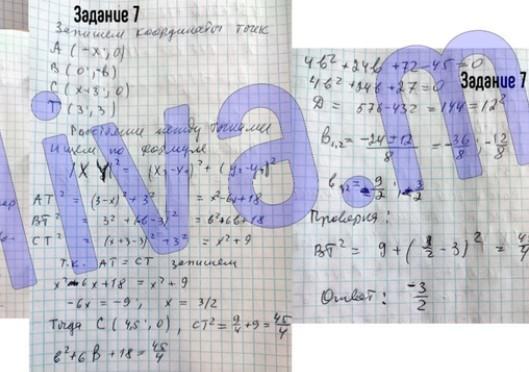 Задание 7
Запишем координаты точек
A (-x; 0)
B (0; -b)
C (x+3; 0)
T (3; 3)
Расстояние между точками
ищем по формуле
|XY|² = (x₁-x₂)² + (y₁-y₂)²
AT² = (3-x)² + 3² = x²-6x+18
BT² = 3² + (-b-3)² = b²+6b+18
CT² = (x+3-3)² + 3² = x²+9
т.к. AT = CT запишем
x²-6x+18 = x²+9
-6x = -9, x = 3/2
Тогда C (4,5; 0), CT² = 9/4 + 9 = 45/4
b²+6b+18 = 45/4
4b²+24b+72-45=0
4b²+24b+27=0
Задание 7
D = 576-432 = 144 = 12²
b₁,₂ = -24±12/8 = -36/8; -12/8
b₁,₂ = -9/2; -3/2
Проверка:
Ответ: -3/2